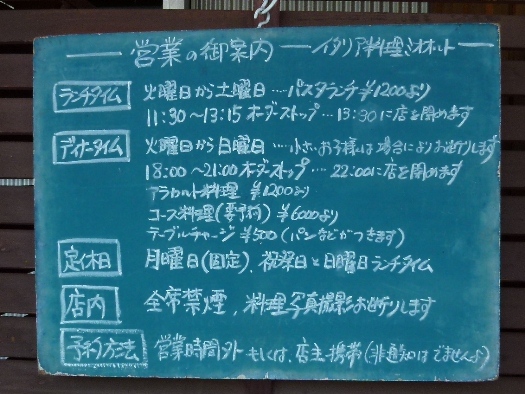 営業の御案内 イタリア料理ミオオット
ランチタイム 火曜日から土曜日…パスタランチ¥1200より
11:30～13:15 オーダーストップ…13:30に店を閉めます
ディナータイム 火曜日から日曜日…小さいお子様は場合によりお断りします
18:00～21:00 オーダーストップ…22:00に店を閉めます
アラカルト料理 ¥1200より
コース料理(要予約) ¥6000より
テーブルチャージ ¥500(パンなどがつきます)
定休日 月曜日(固定)、祝祭日と日曜日ランチタイム
店内 全席禁煙、料理写真撮影お断りします
予約方法 営業時間外もしくは、店主携帯(非通知はでませんよ)